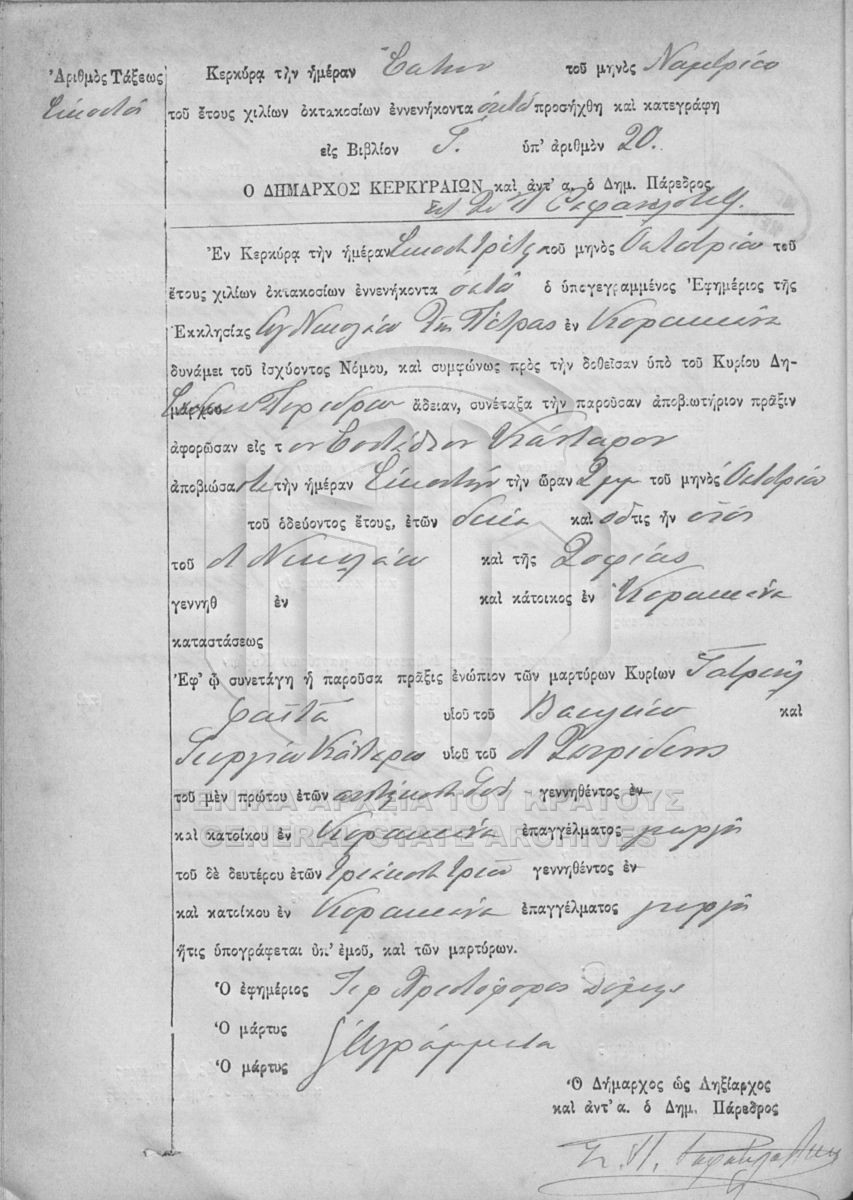 Ἀριθμὸς Τάξεως
Εἰκοστός
Κερκύρᾳ τὴν ἡμέραν Ἕκτην τοῦ μηνὸς Νοεμβρίου
τοῦ ἔτους χιλίων ὀκτακοσίων ἐννενήκοντα ὀκτὼ προσήχθη καὶ κατεγράφη
εἰς Βιβλίον Γ. ὑπ' ἀριθμὸν 20.
Ο ΔΗΜΑΡΧΟΣ ΚΕΡΚΥΡΑΙΩΝ καὶ ἀντ' α. ὁ Δημ. Πάρεδρος
Ἐν Κερκύρᾳ τὴν ἡμέραν Εἰκοστὴ τρίτη τοῦ μηνὸς Ὀκτωβρίου τοῦ
ἔτους χιλίων ὀκτακοσίων ἐννενήκοντα ὀκτὼ ὁ ὑπογεγραμμένος Ἐφημέριος τῆς
Ἐκκλησίας Ἁγ Νικολάου τῆς Πέτρας ἐν Κορακιάνα
δυνάμει τοῦ ἰσχύοντος Νόμου, καὶ συμφώνως πρὸς τὴν δοθεῖσαν ὑπὸ τοῦ Κυρίου Δη-
μάρχου ἄδειαν, συνέταξα τὴν παροῦσαν ἀποβιωτήριον πρᾶξιν
ἀφορῶσαν εἰς τ ον Κάνταρον
ἀποβιώσαντα τὴν ἡμέραν Εἰκοστὴν τὴν ὥραν 2μμ τοῦ μηνὸς Ὀκτωβρίου
τοῦ ὁδεύοντος ἔτους, ἐτῶν δέκα καὶ ὅςτις ἦν υἱὸς
τοῦ Νικολάου καὶ τῆς Σοφίας
γεννηθ ἐν καὶ κάτοικος ἐν Κορακιάνα
καταστάσεως
Ἐφ' ᾧ συνετάγη ἡ παροῦσα πρᾶξις ἐνώπιον τῶν μαρτύρων Κυρίων
Φαϊτᾶ υἱοῦ τοῦ Βασιλείου καὶ
Γεωργίου Κάνταρου υἱοῦ τοῦ Σπυρίδωνος
τοῦ μὲν πρώτου ἐτῶν γεννηθέντος ἐν
καὶ κατοίκου ἐν Κορακιάνα ἐπαγγέλματος γεωργὸς
τοῦ δὲ δευτέρου ἐτῶν τριάκοντα τριῶν γεννηθέντος ἐν
καὶ κατοίκου ἐν Κορακιάνα ἐπαγγέλματος γεωργὸς
ἥτις ὑπογράφεται ὑπ' ἐμοῦ, καὶ τῶν μαρτύρων.
Ὁ ἐφημέριος Ἱερ Χριστόφορος
Ὁ μάρτυς
Ἀγράμματοι
Ὁ μάρτυς
Ὁ Δήμαρχος ὡς Ληξίαρχος
καὶ ἀντ' α. ὁ Δημ. Πάρεδρος
ΓΕΝΙΚΑ ΑΡΧΕΙΑ ΤΟΥ ΚΡΑΤΟΥΣ
GENERAL STATE ARCHIVES